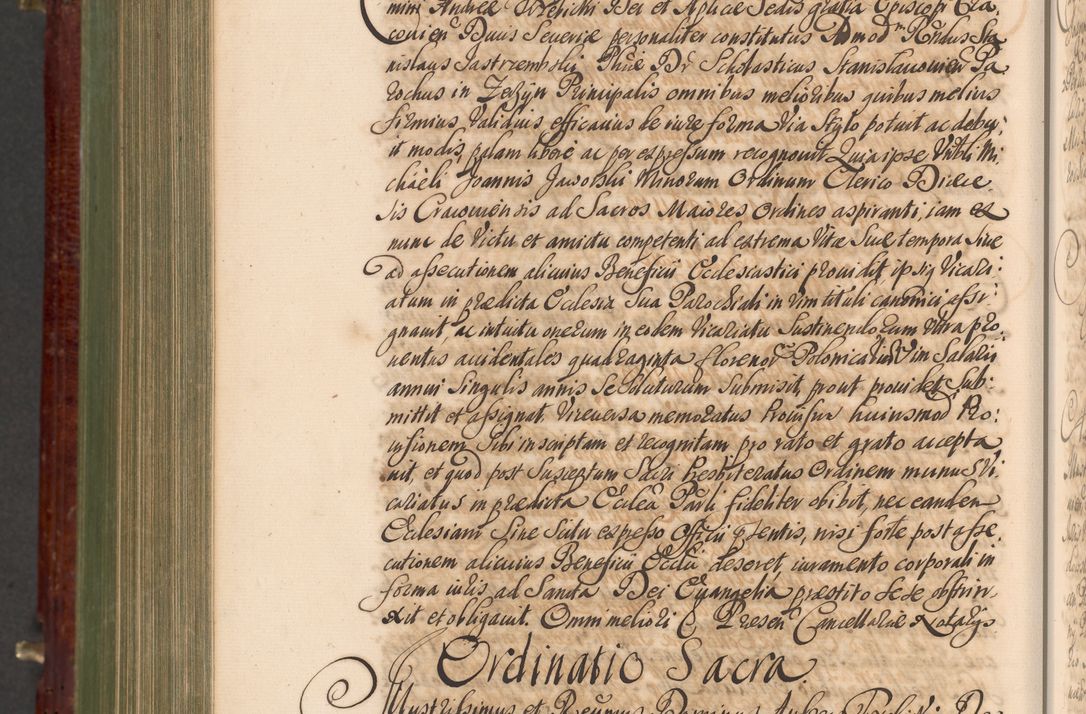 mini Andreæ Trebicki Dei et Aplicæ Sedis gratia Episcopi Cra,
covien Ducis Severiæ personaliter constitutus Admod Rndus Sta
nislaus Jastrzembski Phiæ Dr Scholasticus Stanislaovien Pa
rochus in Principalis omnibus melioribus quibus melius
firmius validius efficacius de iure forma via Stylo potuit ac debu,
it modis, palam libere ac per expressum recognovit Quia ipse Vnbli Mi
chaeli Joannis Jaworski Minorum Ordinum Clerico Diæce
sis Cracoviensis ad Sacros Maiores Ordines aspiranti, iam ex
nunc de Victu et amictu competenti ad extrema Vitæ Suæ tempora Sive
ad assecutionem alicuius Beneficii Ecclesiastici providit ipsiq Vicari:
atum in prædicta Ecclesia Sua Parochiali in Vim tituli canonici assi
gnavit, ac intuitu onerum in eodem Vicariatu Sustinendorum Vltra pro
ventus accidentales quadraginta florenor Polonicaliu Vim Salarii
annui Singulis annis Se daturum Submisit, prout providet, Sub:
mittit et assignat. Viceversa memoratus huiusmod Pro:
visionem Sibi inscriptam et recognitam pro rato et grato accepta
vit, et quod post Susceptum Sacri Presbiteratus Ordinem munus Vi
cariatus in prædicta Ecclea Parli fideliter obibit, nec eandem
Ecclesiam Sine Scitu expresso Officii psentis, nisi forte post asse
cutionem alicuius Beneficii Ecclii deseret, iuramento corporali in
forma iuris ad Sancta Dei Evangelia præstito Sese obstrin
xit et obligavit. Omni meliori Presen Cancellariæ Notariis
Ordinatio Sacra
Illustrissimus et Reverendissimus Dominus